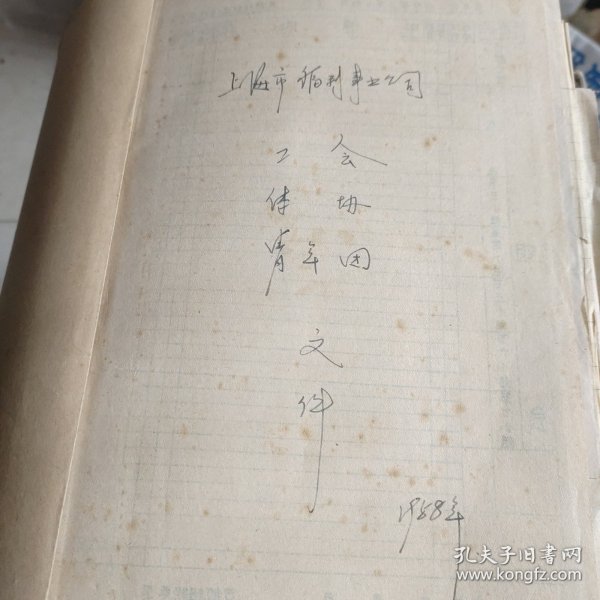 上海市福利事业公司
工会
体协
青年团
文件
1958年
孔夫子旧书网
www.kongfz.com